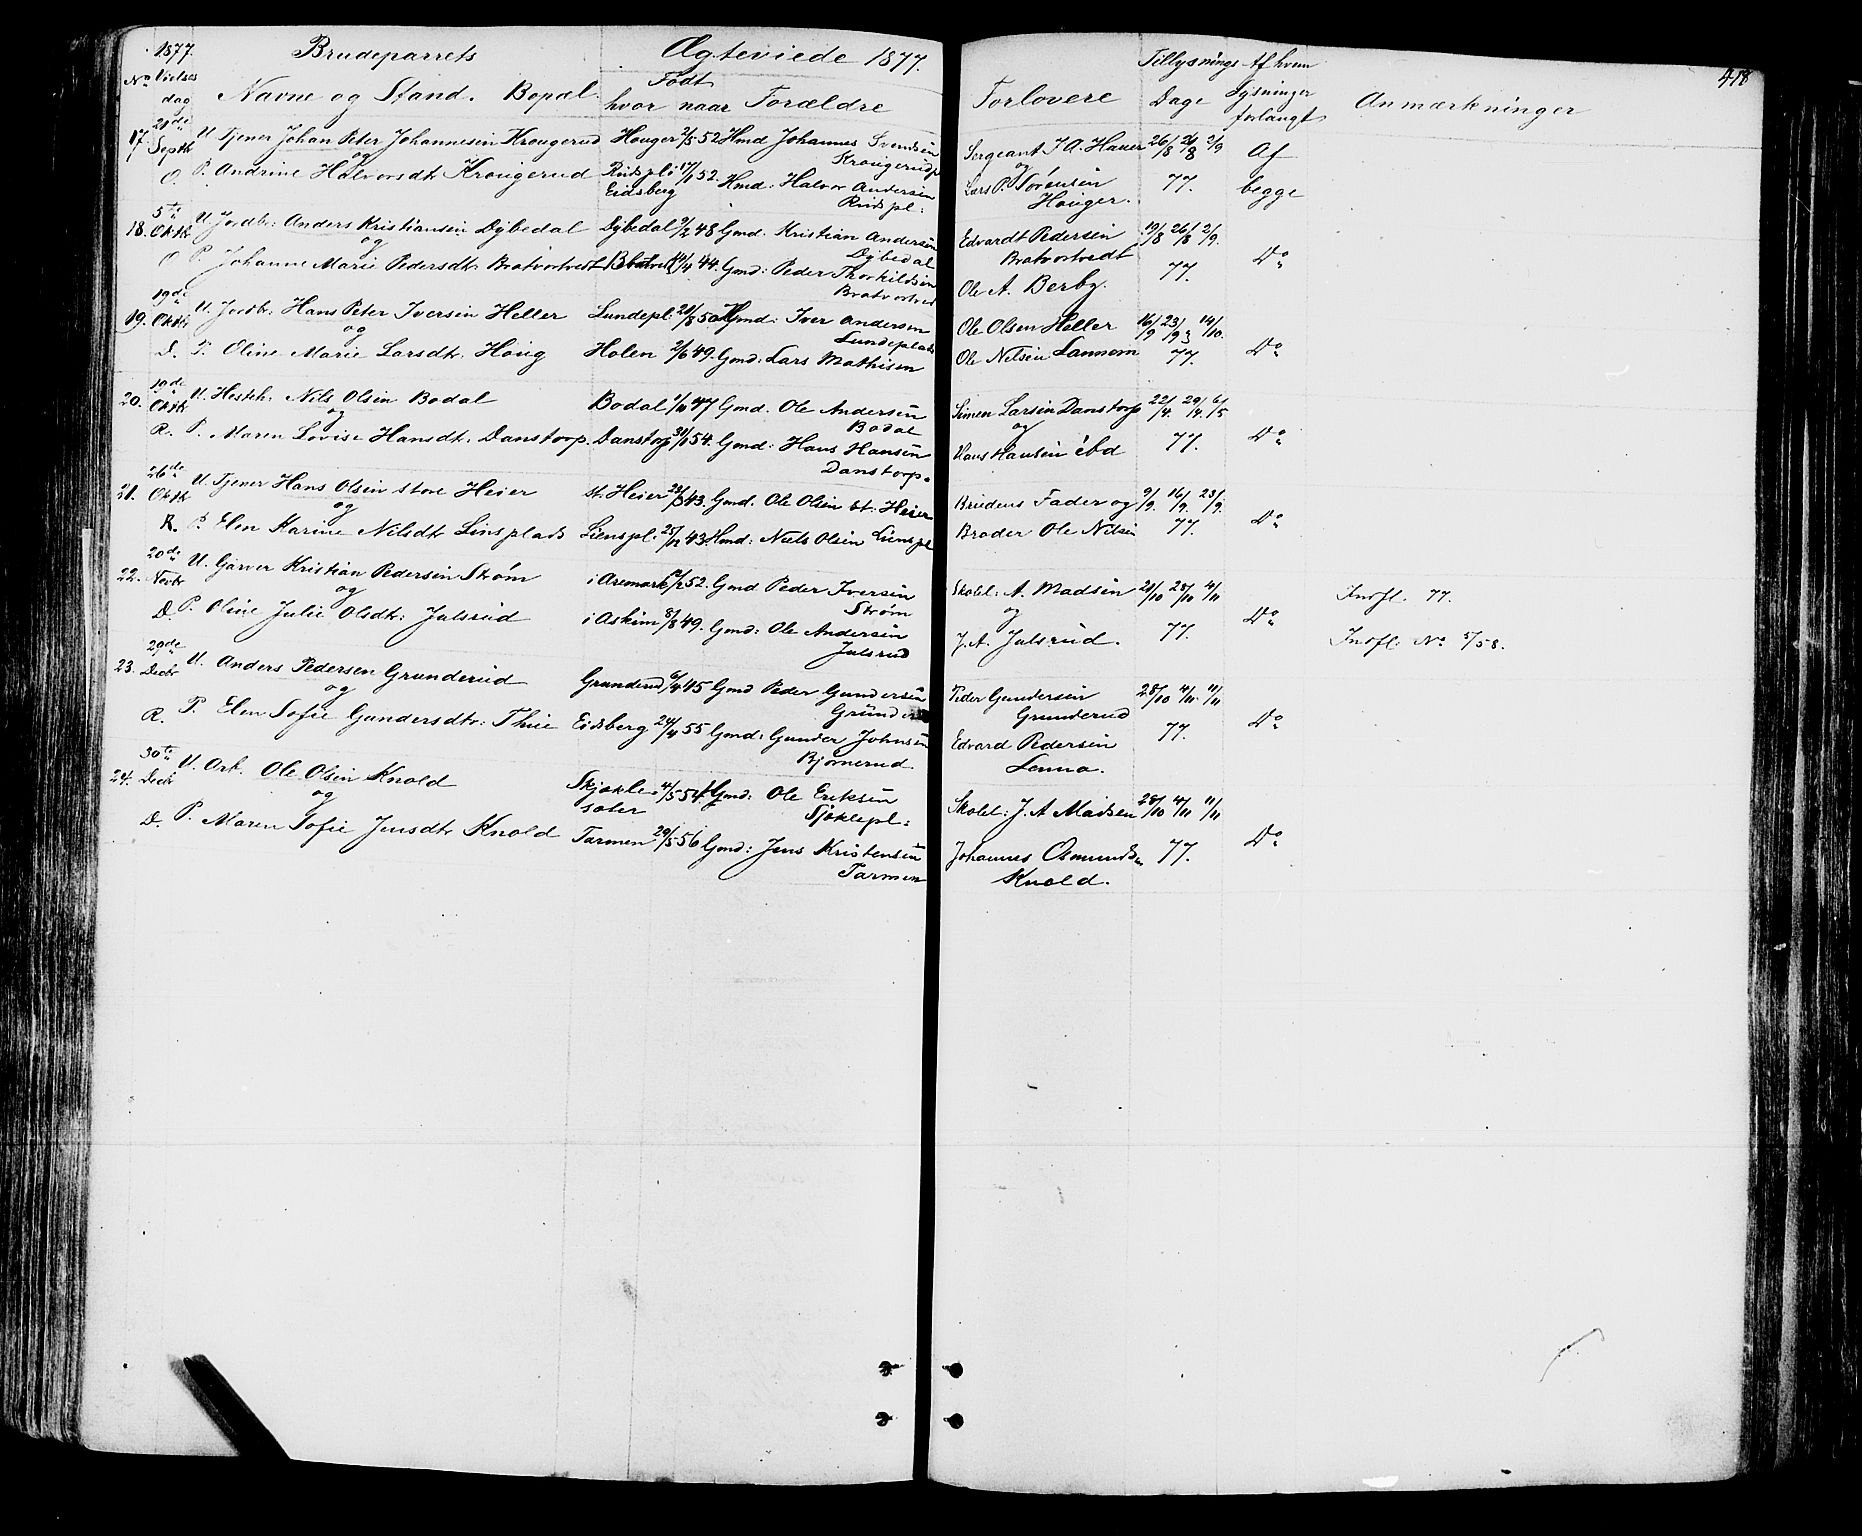 1877. Brudeparrets Ægteviede 1877. Tillysnings Af hvem 418
No Vielses dag Navne og Stand. Bopæl. Født hvor naar Forældre Forlovere Dage Lysninger forlangt Anmærkninger
21de
17. Septb U. Tjener Johan Peter Johannesen Krougerud Houger 2/5 52 Hmd Johannes Svendsen Sergeant J. A. Hauer 26/8 2/9 Af
og Krougerudp og
O. P. Andrine Halvorsdtr Krougerud Rudspl i 17/1 52. Hmd. Halvor Andersen Lars P. Sørensen 77. begge
Eidsberg Rudspl: Houger.
5te
18. Oktb U. Jordbr: Anders Kristiansen Dybedal Dybedal 9/2 48 Gmd. Kristian Andersen Edvardt Pedersen 19/8 26/8 2/9.
og Dybedal Bratvortvedt Do
O P. Johanne Marie Pedersdtr. Bratvortvedt 44. Gmd: Peder Thorkildsen Ole A. Berby. 77.
Bratvortved
19de
19. Oktbr U. Jordbr: Hans Peter Iversen Heller Lundepl: 21/8 50 Hmd: Iver Andersen Ole Olsen Heller 16/9 23/9 14/10.
og Lundeplads
D. P. Oline Marie Larsdtr. Houg Holen 2/6 49. Gmd: Lars Mathisen Ole Nilsen Lannem 77. Do
19de
20. Oktbr U. Hesteh: Nils Olsen Bodal Bodal 47 Gmd. Ole Andersen Simen Larsen Danstorp 22/4. 29/4. 6/5
og Bodal og
R. P. Maren Lovise Hansdtr. Danstorp. Danstorp 54. Gmd: Hans Hansen Hans Hansen ibd 77. Do
Danstorp.
26de
21. Oktbr U. Tjener Hans Olsen store Heier st. Heier 23/3 43. Gmd. Ole Olsen st. Heier Brudens Fader og 9/9. 16/9. 23/9.
og
R. P. Elen Karine Nilsdtr Linsplads Lienspl: 25/12 43. Hmd: Niels Olsen Lienspl Broder Ole Nilsen 77. Do
20de
22. Novbr U. Garver Kristian Pedersen Strøm i Aremark 52. Gmd Peder Iversen Skolel: A. Madsen 21/10 28/10 4/11 Indfl. 77.
og Strøm og
D. P. Oline Julie Olsdtr: Julsrud i Askim 8/8 49. Gmd: Ole Andersen J. A. Julsrud. 77. Do Indfl. No 5/58.
Julsrud
29de
23. Decbr U. Anders Pedersen Grunderud Grunderud 6/4 45 Gmd Peder Gundersen Peder Gundersen 28/10 4/11. 11/11
og Grunderud
R. P. Elen Sofie Gundersdtr: Thue Eidsberg 24/4 55 Gmd: Gunder Johnsen Edvard Pedersen 77. Do
Bjørnerud. Lenna.
30te
24. Decbr U. Arb. Ole Olsen Knold Skjøkle- 4/5 54 Gmd: Ole Eriksen Skolel: J. A Madsen 28/10 4/11 11/11
og sæter Sjøklepl:
D. P. Maren Sofie Jensdtr Knold Tarmen 29/5 56 Gmd: Jens Kristensen Johannes Osmunds 77. Do
Tarmen Knold.